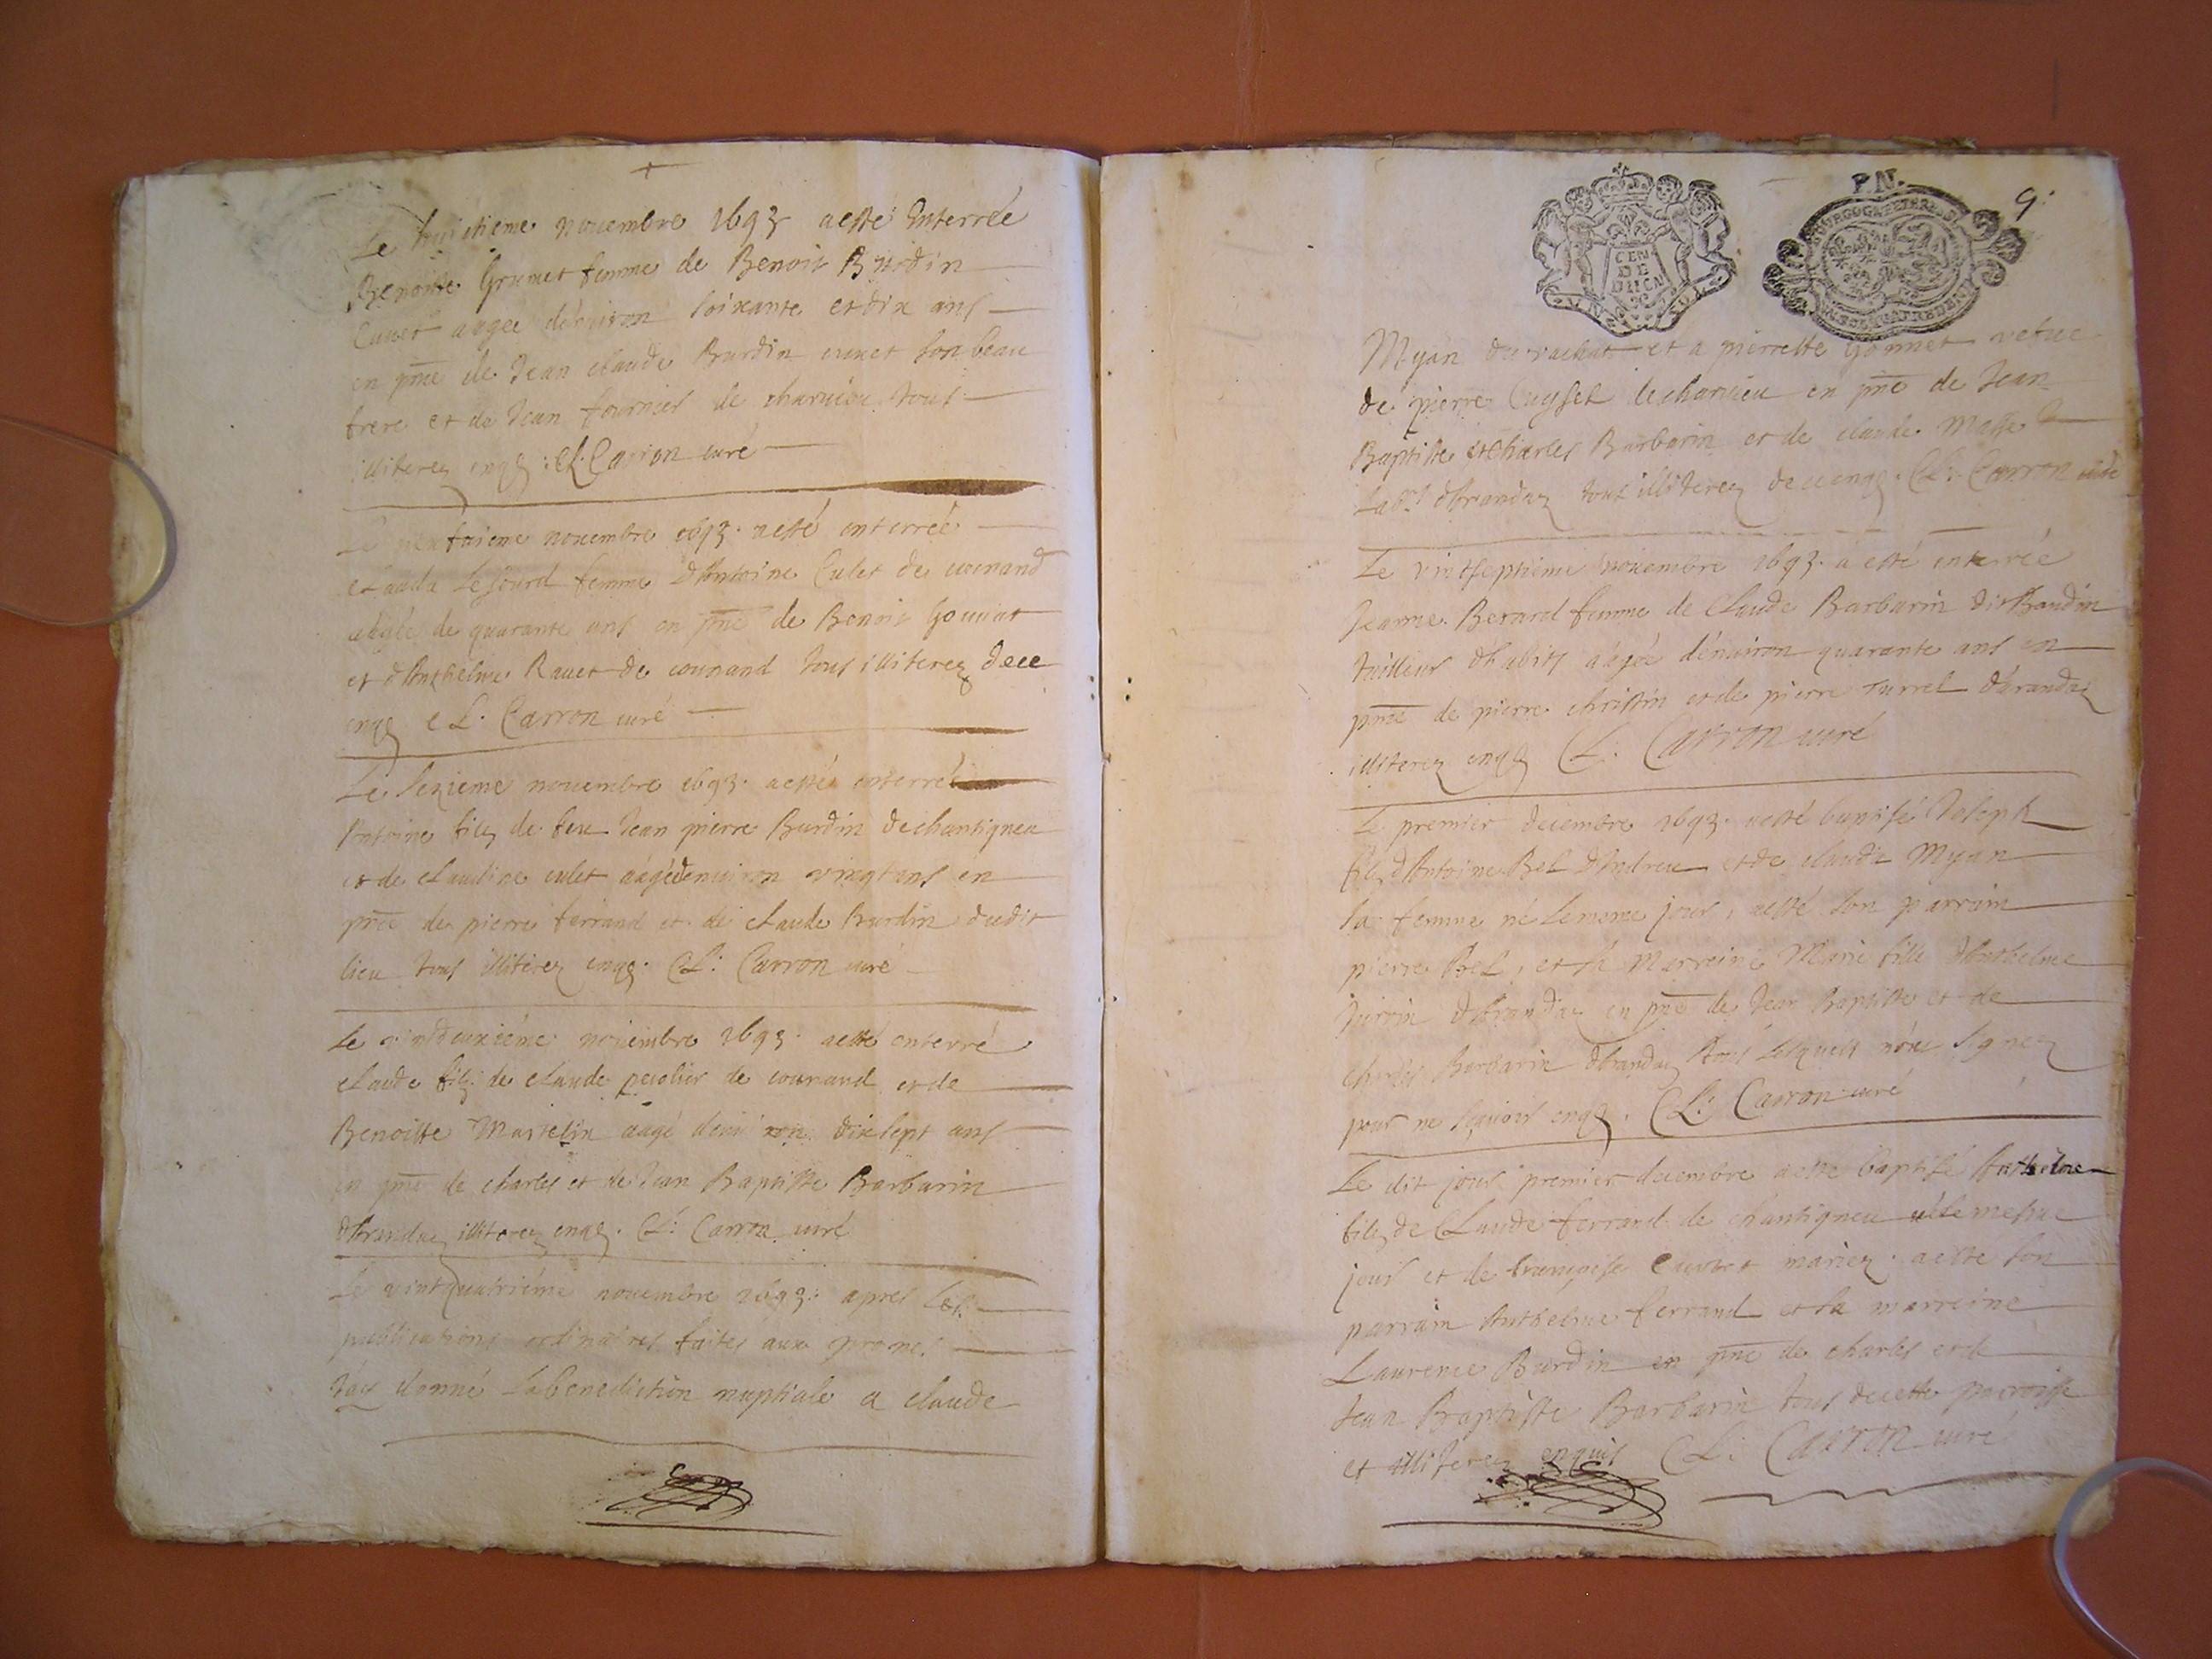 Le huictieme novembre 1693 a esté Enterrée
Benoitte Grumet femme de Benoit Burdin
Cunet aagee d'environ soixante et dix ans
en pnce de Jean claude Burdin cunet son beau
frere et de Jean fournier de charvieu tous
illiterez enqs : Cl. Carron curé
Le neufvieme novembre 1693. a esté enterrée
Clauda Lesourd femme d'Antoine Culet de counand
aagée de quarante ans en pnce de Benoit Gouvat
et d'Anthelme Ravet de counand tous illiterez de ce
enqs Cl. Carron curé
Le sezieme novembre 1693. a esté enterré
Antoine filz de feu Jean pierre Burdin de chantigneu
et de claudine culet aagé d'environ vingt ans en
pnce de pierre ferrand et de claude Burdin dudit
lieu tous illiterez enqs. Cl: Carron curé
Le vintdeuxieme novembre 1693. a esté enterré
claude filz de claude peuolier de counand et de
Benoitte Martelin aagé d'environ dixsept ans
en pnce de charles et de Jean Baptiste Barbarin
d'Arandaz illiterez enqs. Cl: Carron curé
Le vintquatrième novembre 1693. apres les
publications ordinaires faites aux prones
J'ay donné la benediction nuptiale a claude
P.N.
9.
GEN
DE
Myan du rachat et a pierrette Gonnet vefue
de pierre Cuysset de charvieu en pnce de Jean
Baptiste et charles Barbarin et de claude Masse
Lab.r d'Arandaz tous illiterez de ce enqs. Cl: Carron curé
Le vintseptieme novembre 1693. a esté enterrée
Jeanne Berard femme de Claude Barbarin dit Baudin
tailleur d'habits aagée d'environ quarante ans en
pnce de pierre christin et de pierre Turrel d'arandaz
illiterez enqs Cl. Carron curé
Le premier decembre 1693. a esté baptisé Joseph
filz d'Antoine Bel d'Indrieu et de claudia Myan
sa femme né le meme jour, a esté son parrain
pierre Bel, et sa Marreine Marie fille d'Anthelme
Juvrin d'Arandaz en pnce de Jean Baptiste et de
charles Barbarin d'Arandaz tous lesquels n'ont signez
pour ne sçavoir enqs. Cl: Carron curé
Le dit jour premier decembre a esté baptisé Anthelme
filz de Claude ferrand de chantigneu né le mesme
jour et de françoise Cuvret mariez. a esté son
parrain Anthelme ferrand et sa marreine
Laurence Burdin en pnce de charles et de
Jean Baptiste Barbarin tous de cette parroisse
et illiterez enquis Cl: Carron curé